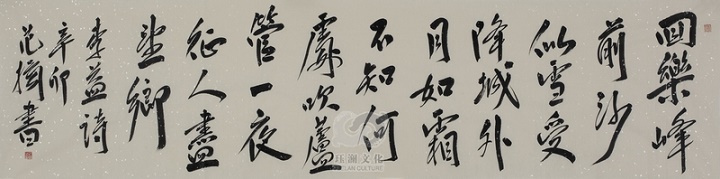 回樂峰
前沙
似雪受
降城外
月如霜
不知何
處吹蘆
管一夜
征人盡
望鄉
李益詩
辛卯
范扬書
珏澜文化